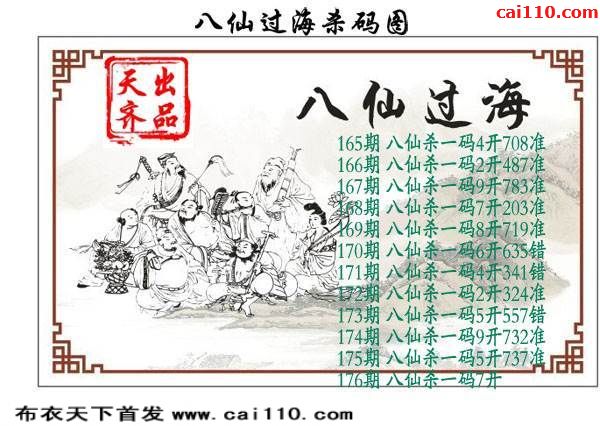 八仙过海杀码图
cai110.com
天齐出品
八仙过海
165期 八仙杀一码4开708准
166期 八仙杀一码2开487准
167期 八仙杀一码9开783准
168期 八仙杀一码7开203准
169期 八仙杀一码8开719准
170期 八仙杀一码6开635错
171期 八仙杀一码4开341错
172期 八仙杀一码2开324准
173期 八仙杀一码5开557错
174期 八仙杀一码9开732准
175期 八仙杀一码5开737准
176期 八仙杀一码7开
布衣天下首发 www.cai110.com